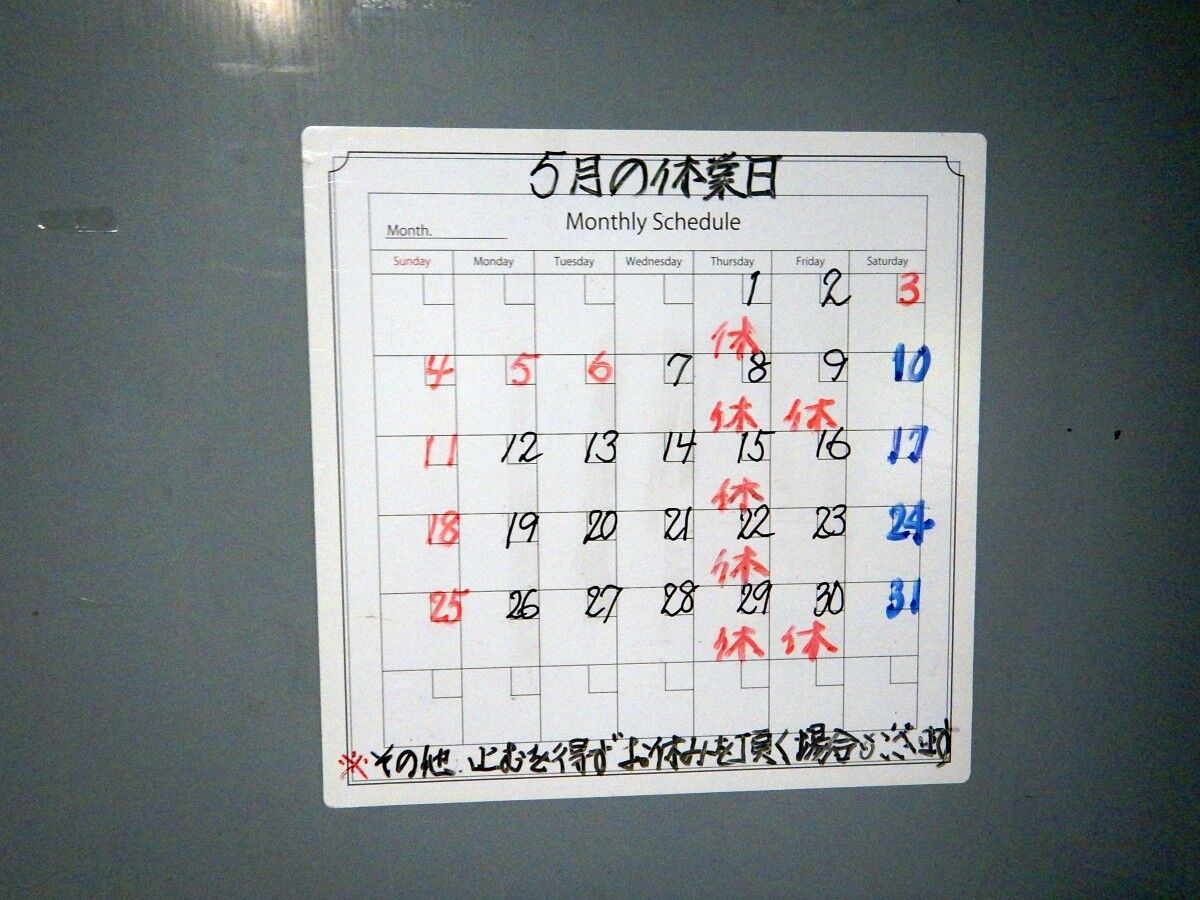 5月の休業日
Monthly Schedule
Month.
Sunday Monday Tuesday Wednesday Thursday Friday Saturday
1 2 3
休
4 5 6 7 8 9 10
休 休
11 12 13 14 15 16 17
休
18 19 20 21 22 23 24
休
25 26 27 28 29 30 31
休 休
※その他、止むを得ずお休みを頂く場合がございます